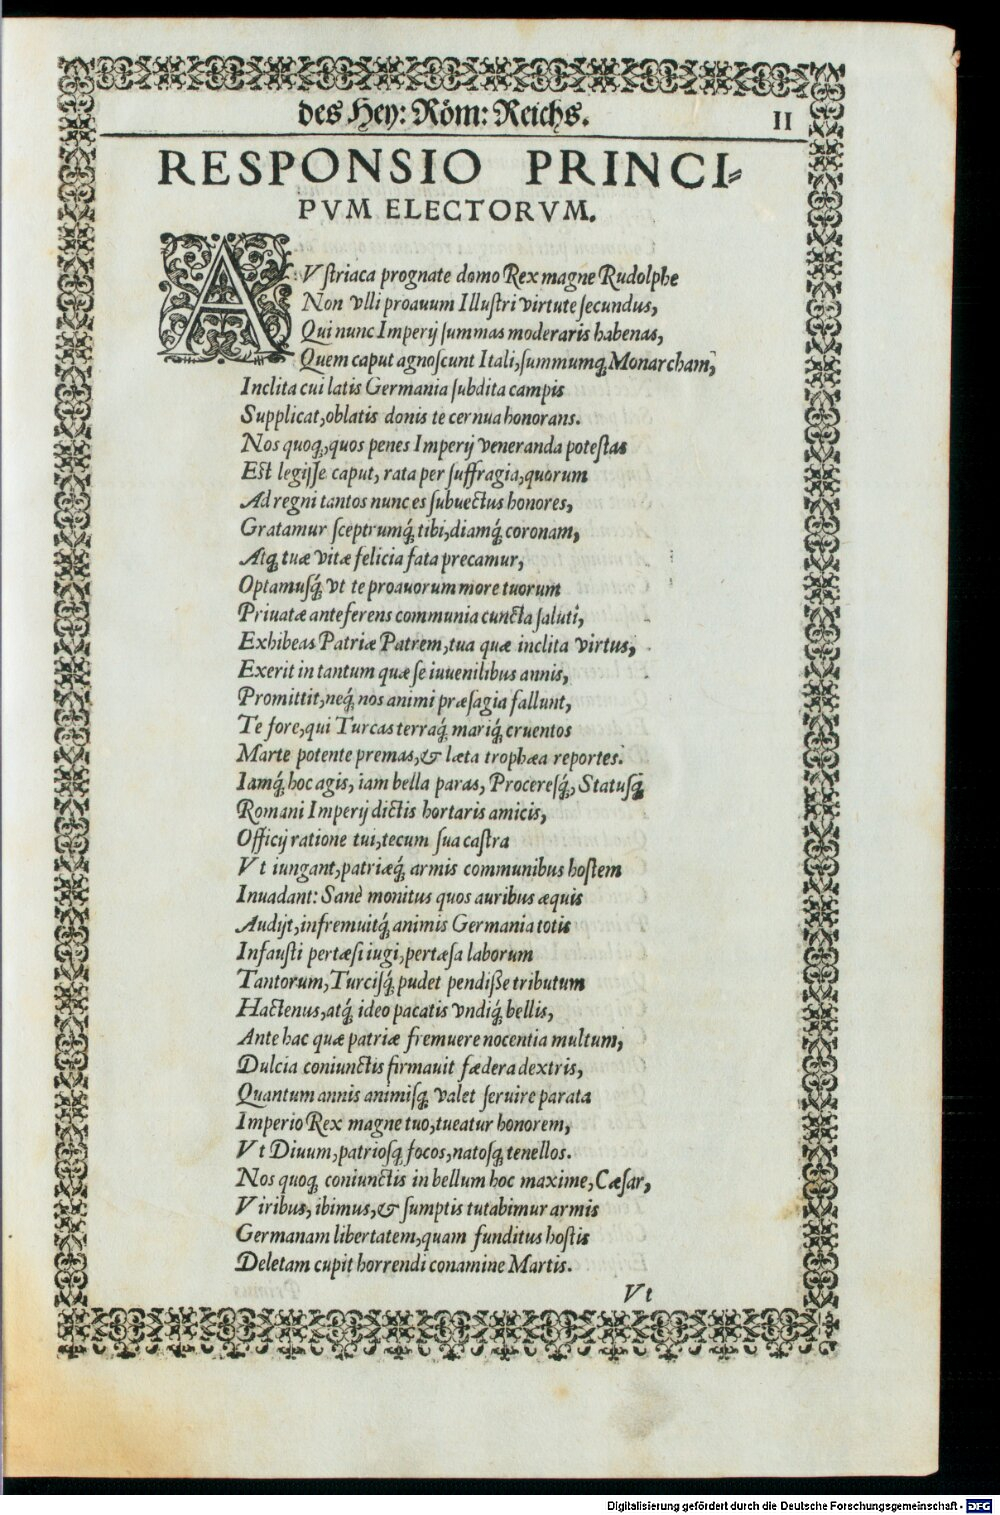 des Hey: Röm: Reichs. II
RESPONSIO PRINCI-
PVM ELECTORVM.
AVſtriaca prognate domo Rex magne Rudolphe
Non vlli proauum Illuſtri virtute ſecundus,
Qui nunc Imperij ſummas moderaris habenas,
Quem caput agnoſcunt Itali, ſummumq́; Monarcham,
Inclita cui latis Germania ſubdita campis
Supplicat, oblatis donis te cernua honorans.
Nos quoq́;, quos penes Imperij veneranda poteſtas
Est legiſſe caput, rata per ſuffragia, quorum
Ad regni tantos nunc es ſubuectus honores,
Gratamur ſceptrumq́; tibi, diamq́; coronam,
Atq́; tuæ vitæ felicia fata precamur,
Optamuſq́; vt te proauorum more tuorum
Priuatæ anteferens communia cuncta ſaluti,
Exhibeas Patriæ Patrem, tua quæ inclita virtus,
Exerit in tantum quæ ſe iuuenilibus annis,
Promittit, neq́; nos animi præſagia fallunt,
Te fore, qui Turcas terraq́; mariq́; cruentos
Marte potente premas, & læta trophæa reportes.
Iamq́; hoc agis, iam bella paras, Procereſq́;, Statuſq́;
Romani Imperij dictis hortaris amicis,
Officij ratione tui, tecum ſua caſtra
Vt iungant, patriæq́; armis communibus hoſtem
Inuadant: Sanè monitus quos auribus æquis
Audijt, infremuitq́; animis Germania totis
Infauſti pertæſi iugi, pertæſa laborum
Tantorum, Turciſq́; pudet pendiſſe tributum
Hactenus, atq́; ideo pacatis vndiq́; bellis,
Ante hac quæ patriæ fremuere nocentia multum,
Dulcia coniunctis firmauit fædera dextris,
Quantum annis animiſq́; valet ſeruire parata
Imperio Rex magne tuo, tueatur honorem,
Vt Diuum, patrioſq́; focos, natoſq́; tenellos.
Nos quoq́; coniunctis in bellum hoc maxime, Cæſar,
Viribus, ibimus, & ſumptis tutabimur armis
Germanam libertatem, quam funditus hoſtis
Deletam cupit horrendi conamine Martis.
Vt
Digitalisierung gefördert durch die Deutsche Forschungsgemeinschaft - DFG